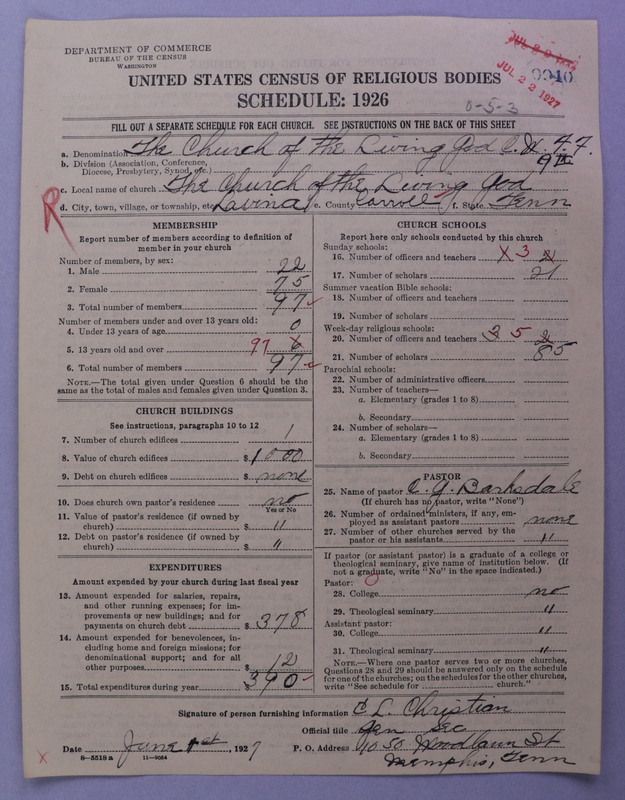 DEPARTMENT OF COMMERCE
BUREAU OF THE CENSUS
WASHINGTON
JUL 22 1927
JUL 22 1927
UNITED STATES CENSUS OF RELIGIOUS BODIES
SCHEDULE: 1926
0-5-3
FILL OUT A SEPARATE SCHEDULE FOR EACH CHURCH. SEE INSTRUCTIONS ON THE BACK OF THIS SHEET
a. Denomination The Church of the Living God C.W. F.F.
b. Division (Association, Conference, Diocese, Presbytery, Synod, etc.) 9th
c. Local name of church The Church of the Living God
d. City, town, village, or township, etc. Lavinia e. County Carroll f. State Tenn
R
MEMBERSHIP
Report number of members according to definition of
member in your church
Number of members, by sex:
1. Male 22
2. Female 75
3. Total number of members 97
Number of members under and over 13 years old:
4. Under 13 years of age 0
5. 13 years old and over 97
6. Total number of members 97
NOTE.—The total given under Question 6 should be the
same as the total of males and females given under Question 3.
CHURCH BUILDINGS
See instructions, paragraphs 10 to 12
7. Number of church edifices 1
8. Value of church edifices $ 1000
9. Debt on church edifices $ none
10. Does church own pastor's residence no
Yes or No
11. Value of pastor's residence (if owned by
church) $ "
12. Debt on pastor's residence (if owned by
church) $ "
EXPENDITURES
Amount expended by your church during last fiscal year
13. Amount expended for salaries, repairs,
and other running expenses; for im-
provements or new buildings; and for
payments on church debt $ 378
14. Amount expended for benevolences, in-
cluding home and foreign missions; for
denominational support; and for all
other purposes $ 12
15. Total expenditures during year $ 390
CHURCH SCHOOLS
Report here only schools conducted by this church
Sunday schools:
16. Number of officers and teachers X 3 2
17. Number of scholars 21
Summer vacation Bible schools:
18. Number of officers and teachers
19. Number of scholars
Week-day religious schools:
20. Number of officers and teachers 3 5 2
21. Number of scholars 85
Parochial schools:
22. Number of administrative officers
23. Number of teachers—
a. Elementary (grades 1 to 8)
b. Secondary
24. Number of scholars—
a. Elementary (grades 1 to 8)
b. Secondary
PASTOR
25. Name of pastor C. Y. Barksdale
(If church has no pastor, write "None")
26. Number of ordained ministers, if any, em-
ployed as assistant pastors none
27. Number of other churches served by the
pastor or his assistants "
If pastor (or assistant pastor) is a graduate of a college or
theological seminary, give name of institution below. (If
not a graduate, write "No" in the space indicated.)
Pastor:
28. College no
29. Theological seminary "
Assistant pastor:
30. College "
31. Theological seminary "
NOTE.—Where one pastor serves two or more churches,
Questions 28 and 29 should be answered only on the schedule
for one of the churches; on the schedules for the other churches,
write "See schedule for church."
Signature of person furnishing information C L. Christian
Official title Gen Sec
Date June 1st, 1927 P. O. Address 1050 Woodlawn St
Memphis, Tenn
8—5518 a 11—9084
X